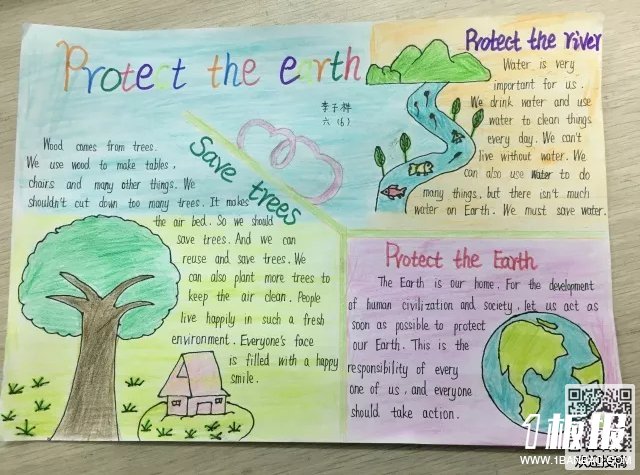 Protect the earth
李子梓
六(6)
Save trees
Wood comes from trees.
We use wood to make tables,
chairs and many other things. We
shouldn't cut down too many trees. It makes
the air bed. So we should
save trees. And we can
reuse and save trees. We
can also plant more trees to
keep the air clean. People
live happily in such a fresh
environment. Everyone's face
is filled with a happy
smile.
Protect the river
Water is very
important for us.
We drink water and use
water to clean things
every day. We can't
live without water. We
can also use water to do
many things, but there isn't much
water on Earth. We must save water.
Protect the Earth
The Earth is our home. For the development
of human civilization and society, let us act as
soon as possible to protect
our Earth. This is the
responsibility of every
one of us, and everyone
should take action.
1板报
WWW.1BANBAO.COM